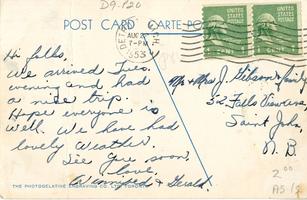 D9-120
POST CARD CARTE POS
DETR
AUG 2
7-PM
1953
MICH.
UNITED STATES POSTAGE
1 CENT 1
UNITED STATES POSTAGE
1 CENT 1
Hi folks,
We arrived Tues.
evening and had
a nice trip.
Hope everyone is
well. We have had
lovely weather.
See you soon,
love,
Winnifred & Gerald.
Mr & Mrs J. Gibson & family
52 Falls View Ave,
Saint John
N.B
2.00
THE PHOTOGELATINE ENGRAVING CO. LTD. TORONTO